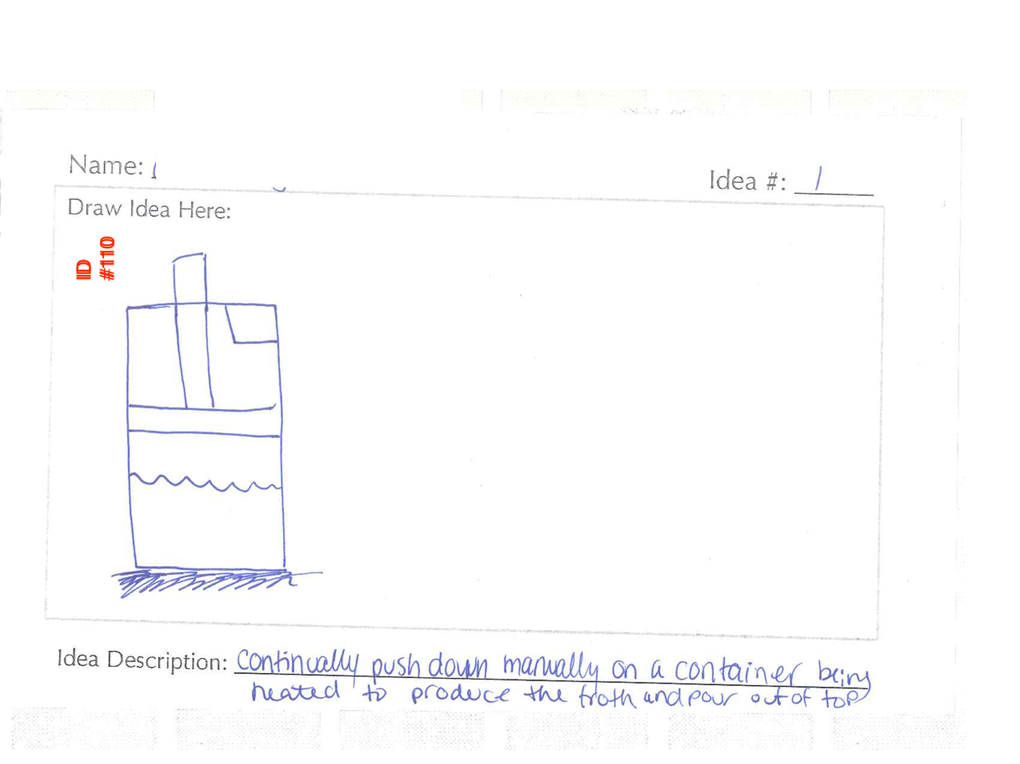 Name:
Idea #: 1
Draw Idea Here:
ID
#110
Idea Description: Continually push down manually on a container being
heated to produce the froth and pour out of top